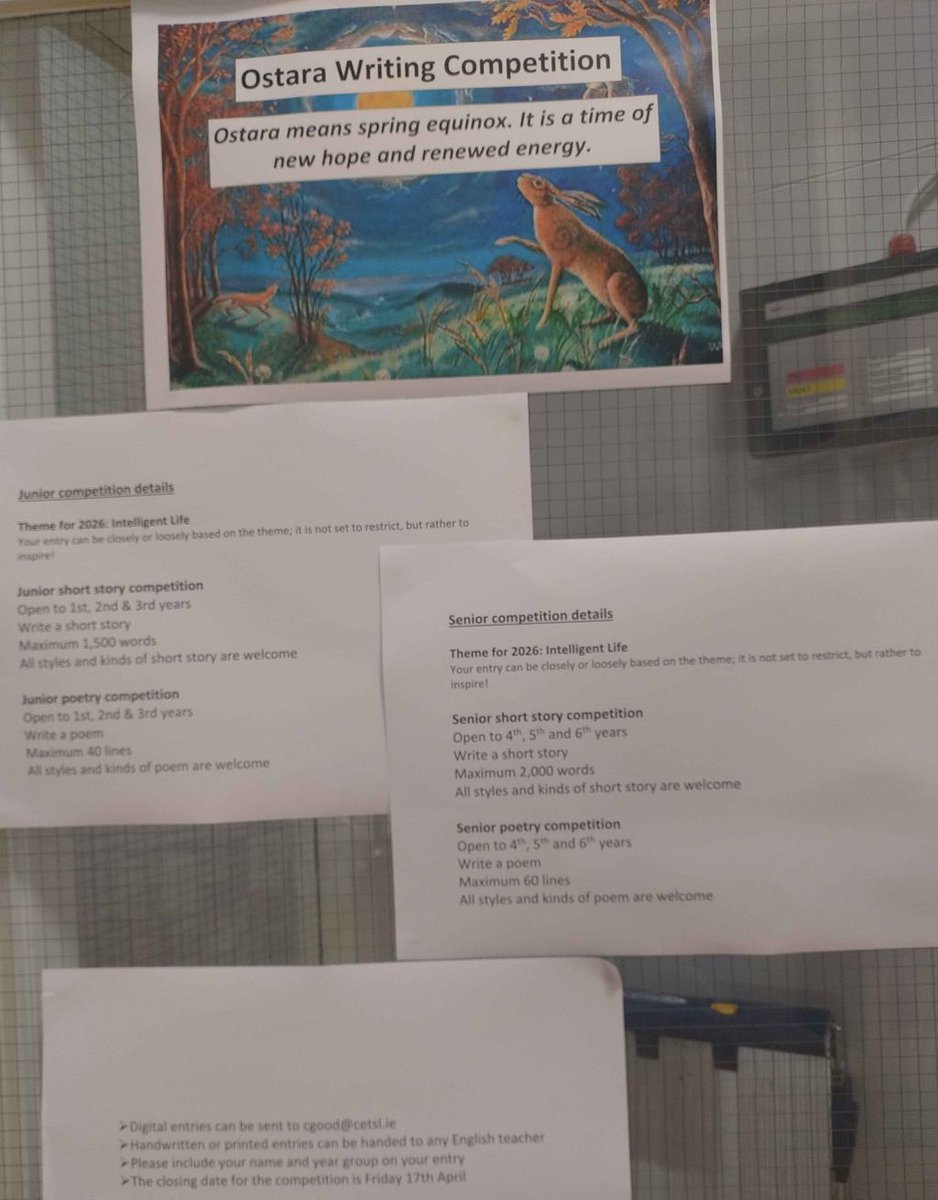 Ostara Writing Competition
Ostara means spring equinox. It is a time of
new hope and renewed energy.
Junior competition details
Theme for 2026: Intelligent Life
Your entry can be closely or loosely based on the theme; it is not set to restrict, but rather to
inspire!
Junior short story competition
Open to 1st, 2nd & 3rd years
Write a short story
Maximum 1,500 words
All styles and kinds of short story are welcome
Junior poetry competition
Open to 1st, 2nd & 3rd years
Write a poem
Maximum 40 lines
All styles and kinds of poem are welcome
Senior competition details
Theme for 2026: Intelligent Life
Your entry can be closely or loosely based on the theme; it is not set to restrict, but rather to
inspire!
Senior short story competition
Open to 4th, 5th and 6th years
Write a short story
Maximum 2,000 words
All styles and kinds of short story are welcome
Senior poetry competition
Open to 4th, 5th and 6th years
Write a poem
Maximum 60 lines
All styles and kinds of poem are welcome
➢Digital entries can be sent to cgood@cetsl.ie
➢Handwritten or printed entries can be handed to any English teacher
➢Please include your name and year group on your entry
➢The closing date for the competition is Friday 17th April